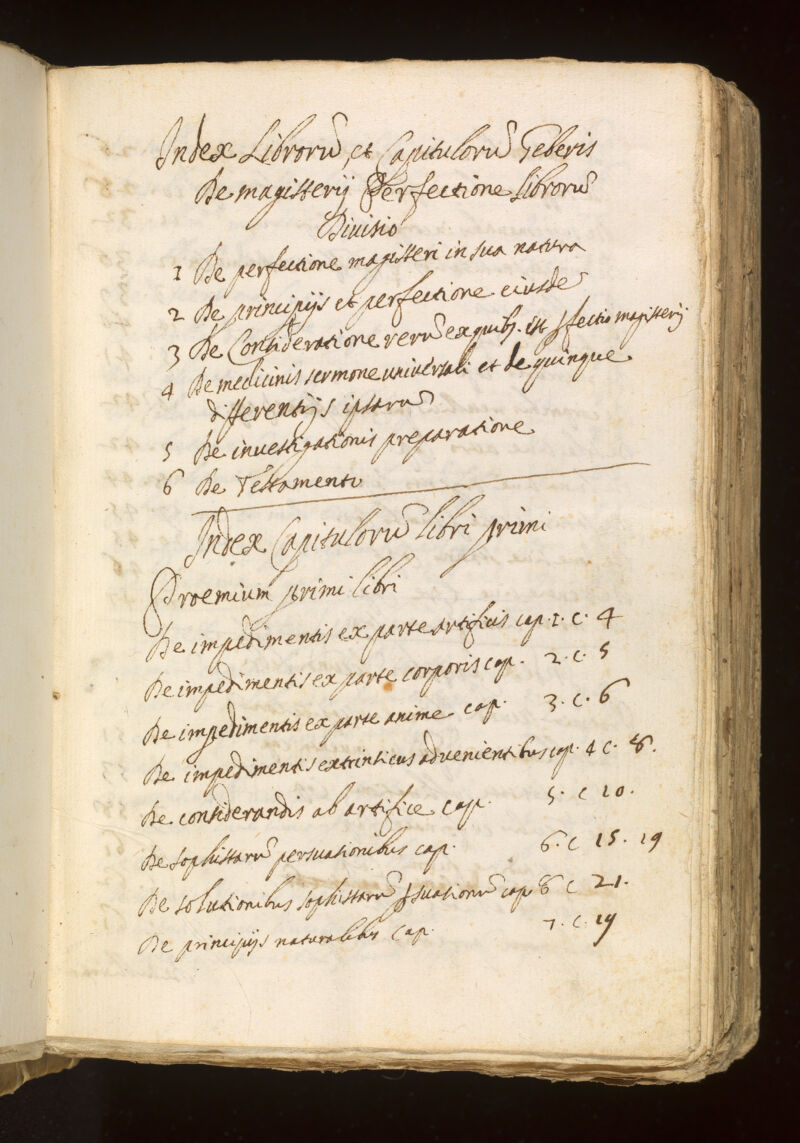 Index Librorū et Capitulorū Geberis
De magisterij Perfectione librorū
Diuisio
1 De perfectione magisteri in sua natura
2 De principijs et perfectione eiusdē
3 De Consideratione rerū ex quib. est pfectio magisterij
4 De medicinis sermone universali et de quinque
differentijs ipsarū
5 De investigationis preparatione
6 De Testamento
Index Capitulorū libri primi
Proemium primi libri
De impedimentis ex parte artificis cap. 1. c. 4
De impedimentis ex parte corporis cap. 2. c. 5
De impedimentis ex parte anime cap. 3. c. 6
De impedimentis extrinticus advenientibus cap. 4 c. 8.
De considerandis ab artifice cap. 5. c 10.
De sophistarū persuationibus cap. 6. c 15. 19
De solutionibus sophistarū psuationū cap 6 c 21.
De principijs naturalibus cap. 7. c. 19